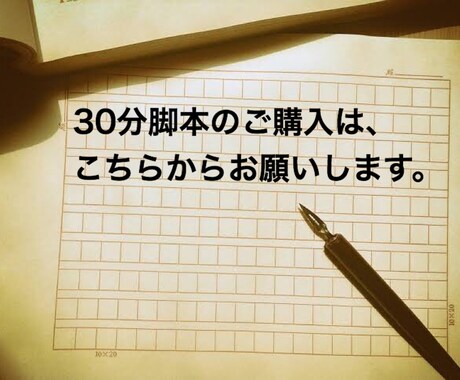 30分脚本のご購入は、
こちらからお願いします。
10×20
10×20